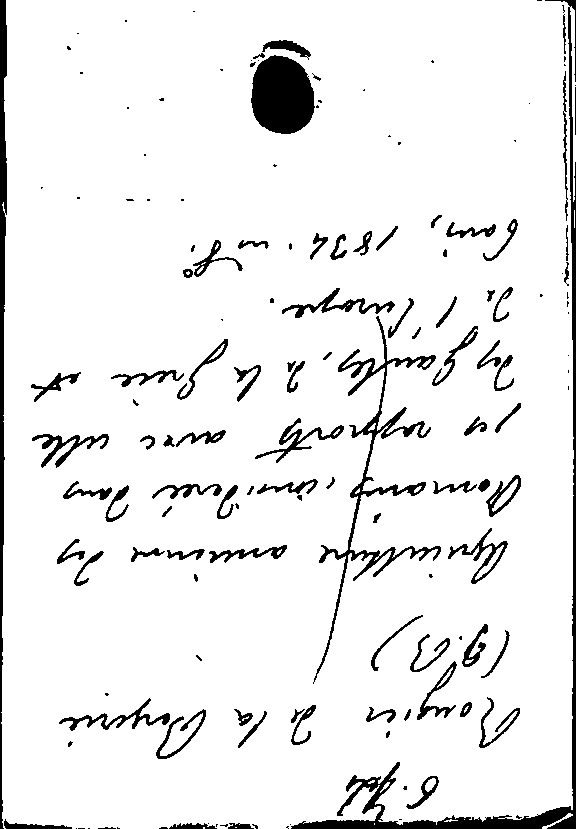 Rougier de la Bergerie
(J. B.)
Agriculture ancienne des
Romains, considérée dans
ses rapports avec celle
des Gaules, de la Grèce et
de l'Europe.
Paris, 1834. in 8°.